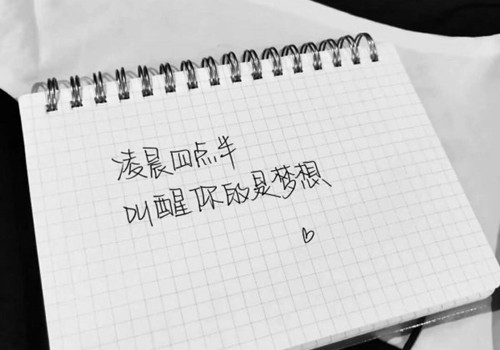 凌晨四点半
叫醒你的是梦想